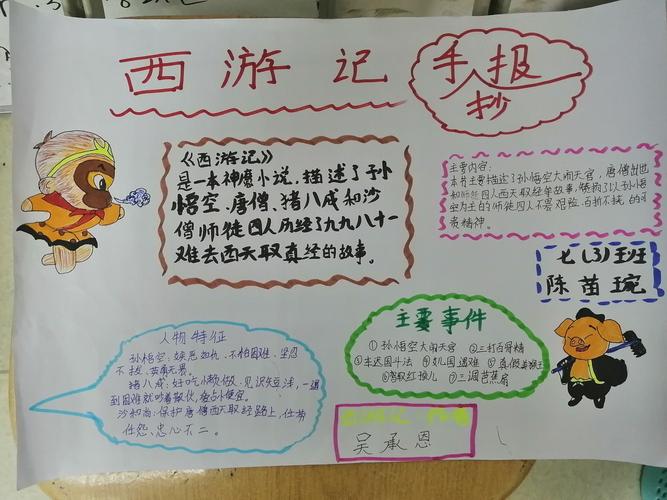 西游记
手抄报
《西游记》
是一本神魔小说,描述了孙
悟空、唐僧、猪八戒和沙
僧师徒四人历经了九九八十一
难去西天取真经的故事。
主要内容:
本书主要描述了孙悟空大闹天宫,唐僧出世
和师徒四人西天取经的故事,倾诉了以孙悟
空为主的师徒四人不畏艰险、百折不挠的可
贵精神。
七(3)班
陈苗琬
人物特征
孙悟空:嫉恶如仇,不怕困难,坚忍
不拔,英勇无畏。
猪八戒:好吃懒做,见识短浅,一遇
到困难就吵着散伙,爱占小便宜。
沙和尚:保护唐僧西天取经路上,任劳
任怨、忠心不二。
主要事件
①孙悟空大闹天宫 ②三打白骨精
③车迟国斗法 ④女儿国遇难 ⑤真假美猴王
⑥智取红孩儿 ⑦三调芭蕉扇
西游记 作者
吴承恩